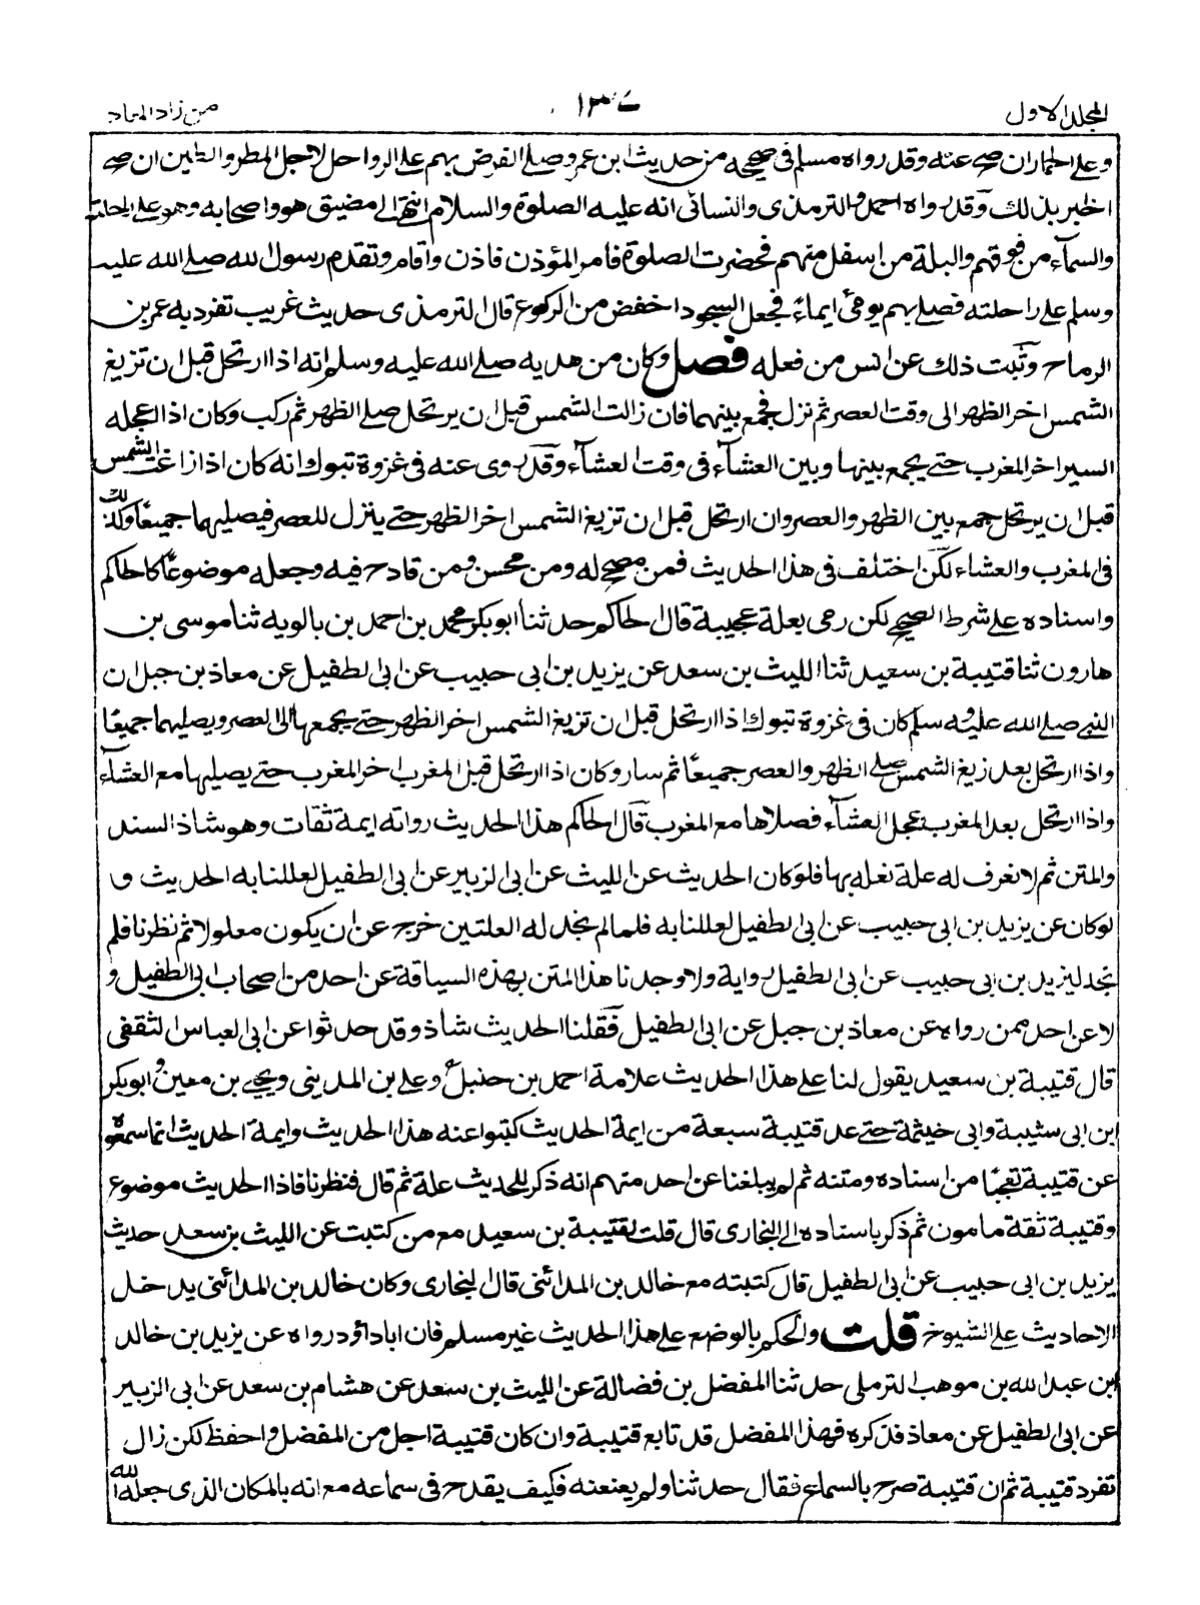 المجلد الاول
١٣٧
من زاد المعاد
وعلى الحماران صح عنه وقد رواه مسلم فى صحيحه من حديث ابن عمر وصلى الفرض بهم على الرواحل لاجل المطر والطين ان صح
الخبر بذلك وقد رواه احمد والترمذى والنسائى انه عليه الصلوة والسلام انتهى الى مضيق هو واصحابه وهو على راحلته
والسماء من فوقهم والبلة من اسفل منهم فحضرت الصلوة فامر المؤذن فاذن واقام وتقدم رسول الله صلى الله عليه
وسلم على راحلته فصلى بهم يومى ايماء فجعل السجود اخفض من الركوع قال الترمذى حديث غريب تفرد به عمر بن
الرماح وثبت ذلك عن انس من فعله فصل وكان من هديه صلى الله عليه وسلم انه اذا ارتحل قبل ان تزيغ
الشمس اخر الظهر الى وقت العصر ثم نزل فجمع بينهما فان زالت الشمس قبل ان يرتحل صلى الظهر ثم ركب وكان اذا اعجله
السير اخر المغرب حتى يجمع بينها وبين العشاء فى وقت العشاء وقد روى عنه فى غزوة تبوك انه كان اذا زاغت الشمس
قبل ان يرتحل جمع بين الظهر والعصر وان ارتحل قبل ان تزيغ الشمس اخر الظهر حتى ينزل للعصر فيصليهما جميعًا وكذلك
فى المغرب والعشاء لكن اختلف فى هذا الحديث فمن مصحح له ومن محسن ومن قادح فيه وجعله موضوعًا كالحاكم
واسناده على شرط الصحيح لكن رمى بعلة عجيبة قال الحاكم حدثنا ابو بكر محمد بن احمد بن بالويه ثنا موسى بن
هارون ثنا قتيبة بن سعيد ثنا الليث بن سعد عن يزيد بن ابى حبيب عن ابى الطفيل عن معاذ بن جبل ان
النبى صلى الله عليه وسلم كان فى غزوة تبوك اذا ارتحل قبل ان تزيغ الشمس اخر الظهر حتى يجمعها الى العصر ويصليهما جميعًا
واذا ارتحل بعد زيغ الشمس صلى الظهر والعصر جميعًا ثم سار وكان اذا ارتحل قبل المغرب اخر المغرب حتى يصليها مع العشاء
واذا ارتحل بعد المغرب عجل العشاء فصلاها مع المغرب قال الحاكم هذا الحديث رواته ايمة ثقات وهو شاذ السند
والمتن ثم لا نعرف له علة نعله بها فلو كان الحديث عن الليث عن ابى الزبير عن ابى الطفيل لعللنا به الحديث و
لو كان عن يزيد بن ابى حبيب عن ابى الطفيل لعللنا به فلما لم نجد له العلتين خرج عن ان يكون معلولا ثم نظرنا فلم
نجد ليزيد بن ابى حبيب عن ابى الطفيل رواية ولا وجدنا هذا المتن بهذه السياقة عن احد من اصحاب ابى الطفيل و
لا عن احد ممن رواه عن معاذ بن جبل عن ابى الطفيل فقلنا الحديث شاذ وقد حدثوا عن ابى العباس الثقفى
قال قتيبة بن سعيد يقول لنا على هذا الحديث علامة احمد بن حنبل وعلى بن المدينى ويحيى بن معين وابو بكر
ابن ابى شيبة وابى خيثمة حتى عد قتيبة سبعة من ايمة الحديث كتبوا عنه هذا الحديث وايمة الحديث انما سمعوه
عن قتيبة تعجبًا من اسناده ومتنه ثم لم يبلغنا عن احد منهم انه ذكر للحديث علة ثم قال فنظرنا فاذا الحديث موضوع
وقتيبة ثقة مامون ثم ذكر باسناده الى البخارى قال قلت لقتيبة بن سعيد مع من كتبت عن الليث بن سعد حديث
يزيد بن ابى حبيب عن ابى الطفيل قال كتبته مع خالد بن المدائنى قال البخارى وكان خالد بن المدائنى يدخل
الاحاديث على الشيوخ قلت والحكم بالوضع على هذا الحديث غير مسلم فان ابا داؤد رواه عن يزيد بن خالد
ابن عبد الله بن موهب الترملى حدثنا المفضل بن فضالة عن الليث بن سعد عن هشام بن سعد عن ابى الزبير
عن ابى الطفيل عن معاذ فذكره فهذا المفضل قد تابع قتيبة وان كان قتيبة اجل من المفضل واحفظ لكن زال
تفرد قتيبة ثم ان قتيبة صرح بالسماع فقال حدثنا ولم يعنعنه فكيف يقدح فى سماعه مع انه بالمكان الذى جعله الله